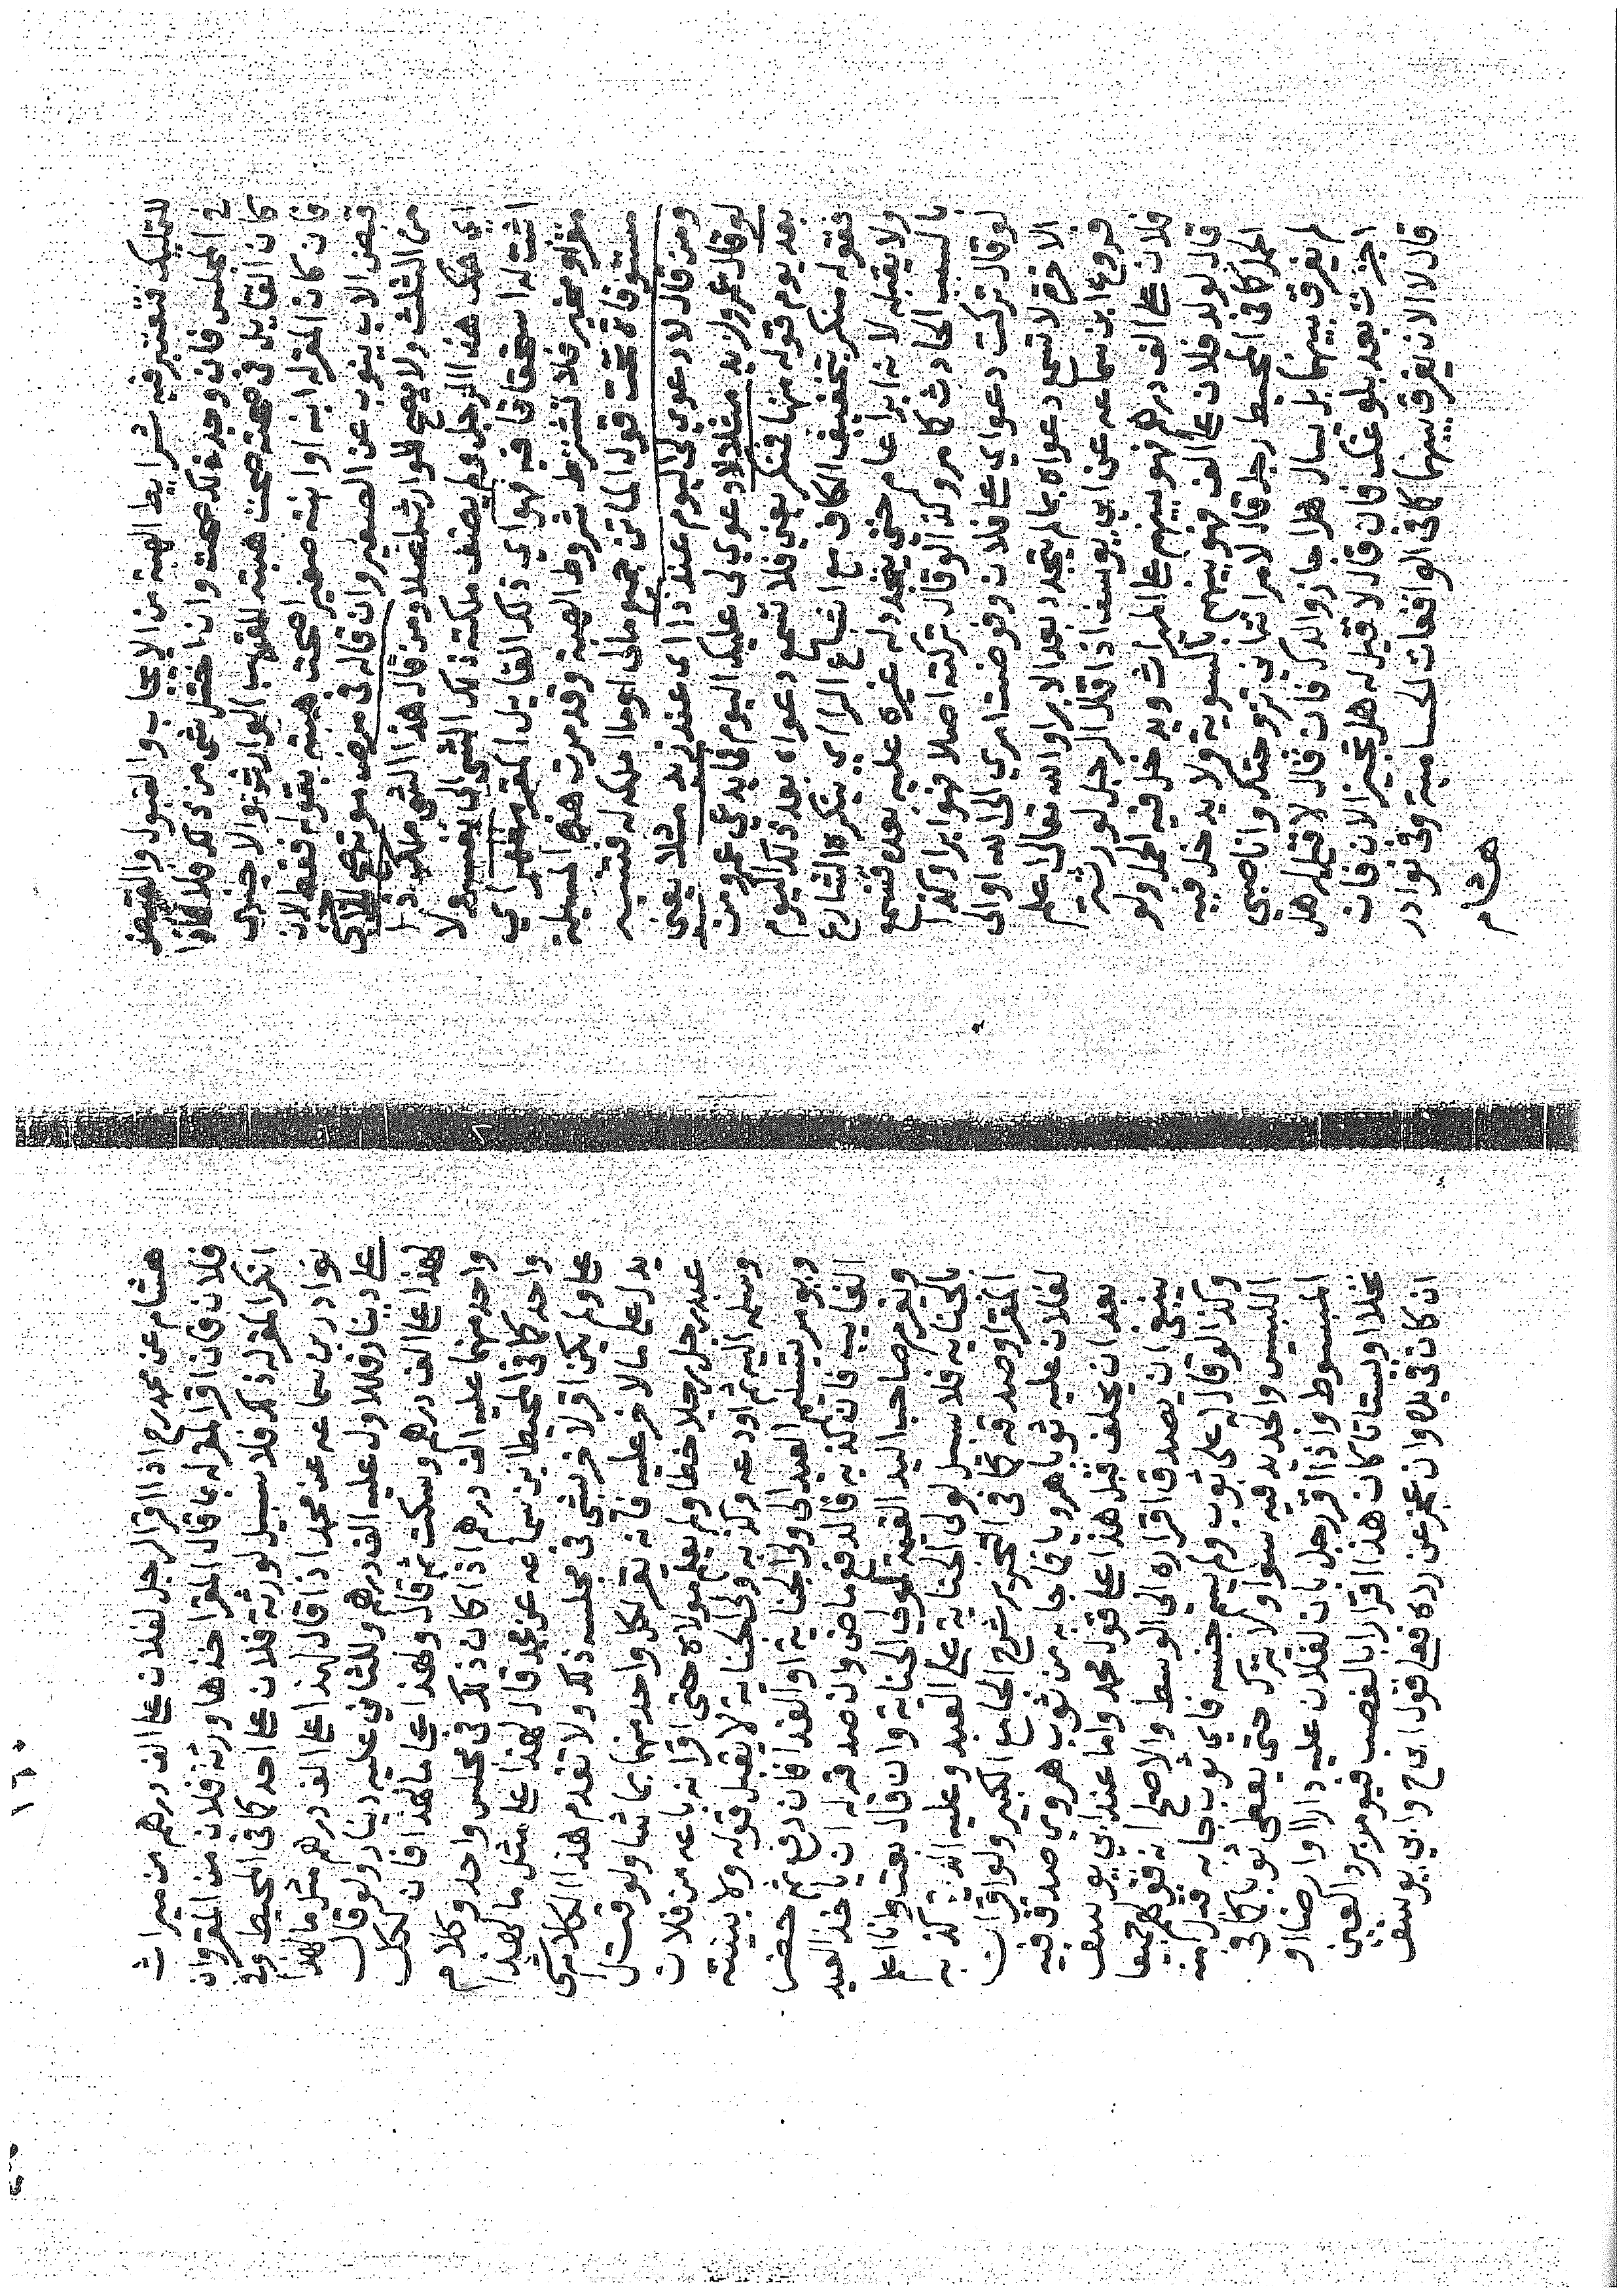 للتمليك فتعتبر فيه شرايط الهبة من الايجاب والقبول والقبض
في المجلس فان وجد ذلك صحت وان اختل شي من ذلك فلا فاذا
كان القايل في صحته صحت هبته للقريب الوارث والاجنبي
فان كان المقر له ابنه او ابنته صغيرا صحت هبته بقوله فقط لان
قبض الاب ينوب عن الصغير وان قاله في مرض موته صح
من الثلث ولا يصح للوارث عملا ومن قال هذا الشي ملك ذا
اي ملك هذا الرجل ولم يضف ملكه ذلك الشي الى نفسه ولا
اثبت له استحقاقا فيه فهو اي ذلك القايل المقر مقر اي
مقر لو مخبر فلا تشترط شروط الهبة وقد مرت هذه المسيلة
مستوفاة تحت قول الماتن جميع مالي او ما املكه له فتنبه
ومن قال لا دعوي لي اليوم عند ذا اي عند زيد مثلا يعني
لو قال عمرو لزيد مثلا لا دعوي لي عليك اليوم فما يدعي عمرو من
بعد يوم قوله منها فمنكر يعني فلا تسمع دعواه بعد ذلك اليوم
فقوله منكر بتخفيف الكاف مع اشباع الراي ينكره الشارع
ولا يقبله لانه ابرا عام حتي يتجدد له غيره عليه بعده فتسمع
بالسبب الحادث كما مر وكذا لو قال تركته اصلا فهو ابرا وكذا
لو قال تركت دعواي علي فلان وفوضت امري الى الله او الى
الاخرة لا تسمع دعواه بما لم يتجدد بعد الابرا والله تعالى اعلم
فروع ابن سماعه عن ابي يوسف اذا قال الرجل لورثة
فلان علي الف درهم فهو بينهم على الميراث ويدخل فيه الحمل ولو
قال لولد فلان علي الف فهو بينهم بالسوية ولا يدخل فيه
الحمل كما في المحيط رجل قال لامراة اني تزوجتك وانا صبي
لم يفرق بينهما بل يسال هل اجاز والدك فان قال لا قيل له هل
اجزت بعد بلوغك فان قال لا قيل له هل تجيز الان فان
قال لا الان يفرق بينهما كما في الواقعات الحسامية وفي نوادر
هشام
١٦٠
هشام عن محمد رح اذا اقر الرجل لفلان علي الف درهم من ميراث
فلان فان اقر المقر له بما قال المقر اخذها ورثة فلان من المقر وان
انكر المقر له ذلك فلا سبيل لورثة فلان على احد كما في المحيط وفي
نوادر بن سماعه عن محمد اذا قال لهذا علي الف درهم مثل ما لهذا
علي دينار فللاول عليه الف درهم وللثاني عليه دينار ولو قال
لهذا علي الف درهم وسكت ثم قال ولهذا علي ما لهذا فان لكل
واحد منهما عليه الف درهم اذا كان ذلك في مجلس واحد وكلام
واحد كما في المحيط ابن سماعه عن محمد قال لهذا علي مثل ما لهذا
علي ولم يكن اقر لاخر بشي في مجلسه ذلك ولا تقدم هذا الكلام شي
يدل علي مال لاخر عليه فانه يقر لكل واحد منهما بما شا ولو قتل
عبد رجل رجلا خطا ولم يعلم مولاه حتى اقر انه باعه من فلان
وسلمه اليه ثم اودعه وكذبه ولي الجناية لا يقبل قوله ولا بينته
ويومر بتسليم العبد الى ولي الجناية او الفدا فان دفع ثم حضر
الغايب فان كذبه فالدفع ماض وان صدقه له ان ياخذ العبد
ويغرم صاحب اليد القيمة لولي الجناية وان قال بعت وانا اعلم
بالجناية فلا سبيل لولي الجناية على العبد وعليه الدية كذبه
المقر او صدقه كما في التحرير شرح الجامع الكبير ولو اقر ان
لفلان عليه ثوبا هرويا فما جا به من ثوب هروي صدق فيه
بعد ان يحلف قيل هذا علي قول محمد واما عند ابي يوسف
ينبغي ان يصدق اقراره الى الوسط والاصح انه قولهم جميعا
وكذا لو قال له علي ثوب ولم يسم جنسه فاي ثوب جا به قبل منه
اللبيس والجديد فيه سوا ولا يترك حتى يعطي ثوبا كما في
المبسوط واذا اقر رجل بان لفلان عليه دارا او ارضا او
نخلا او بستانا كان هذا اقرارا بالغصب فيومر برد العين
ان كان في يده وان عجز عن رده فعلي قول ابي ح وابي يوسف